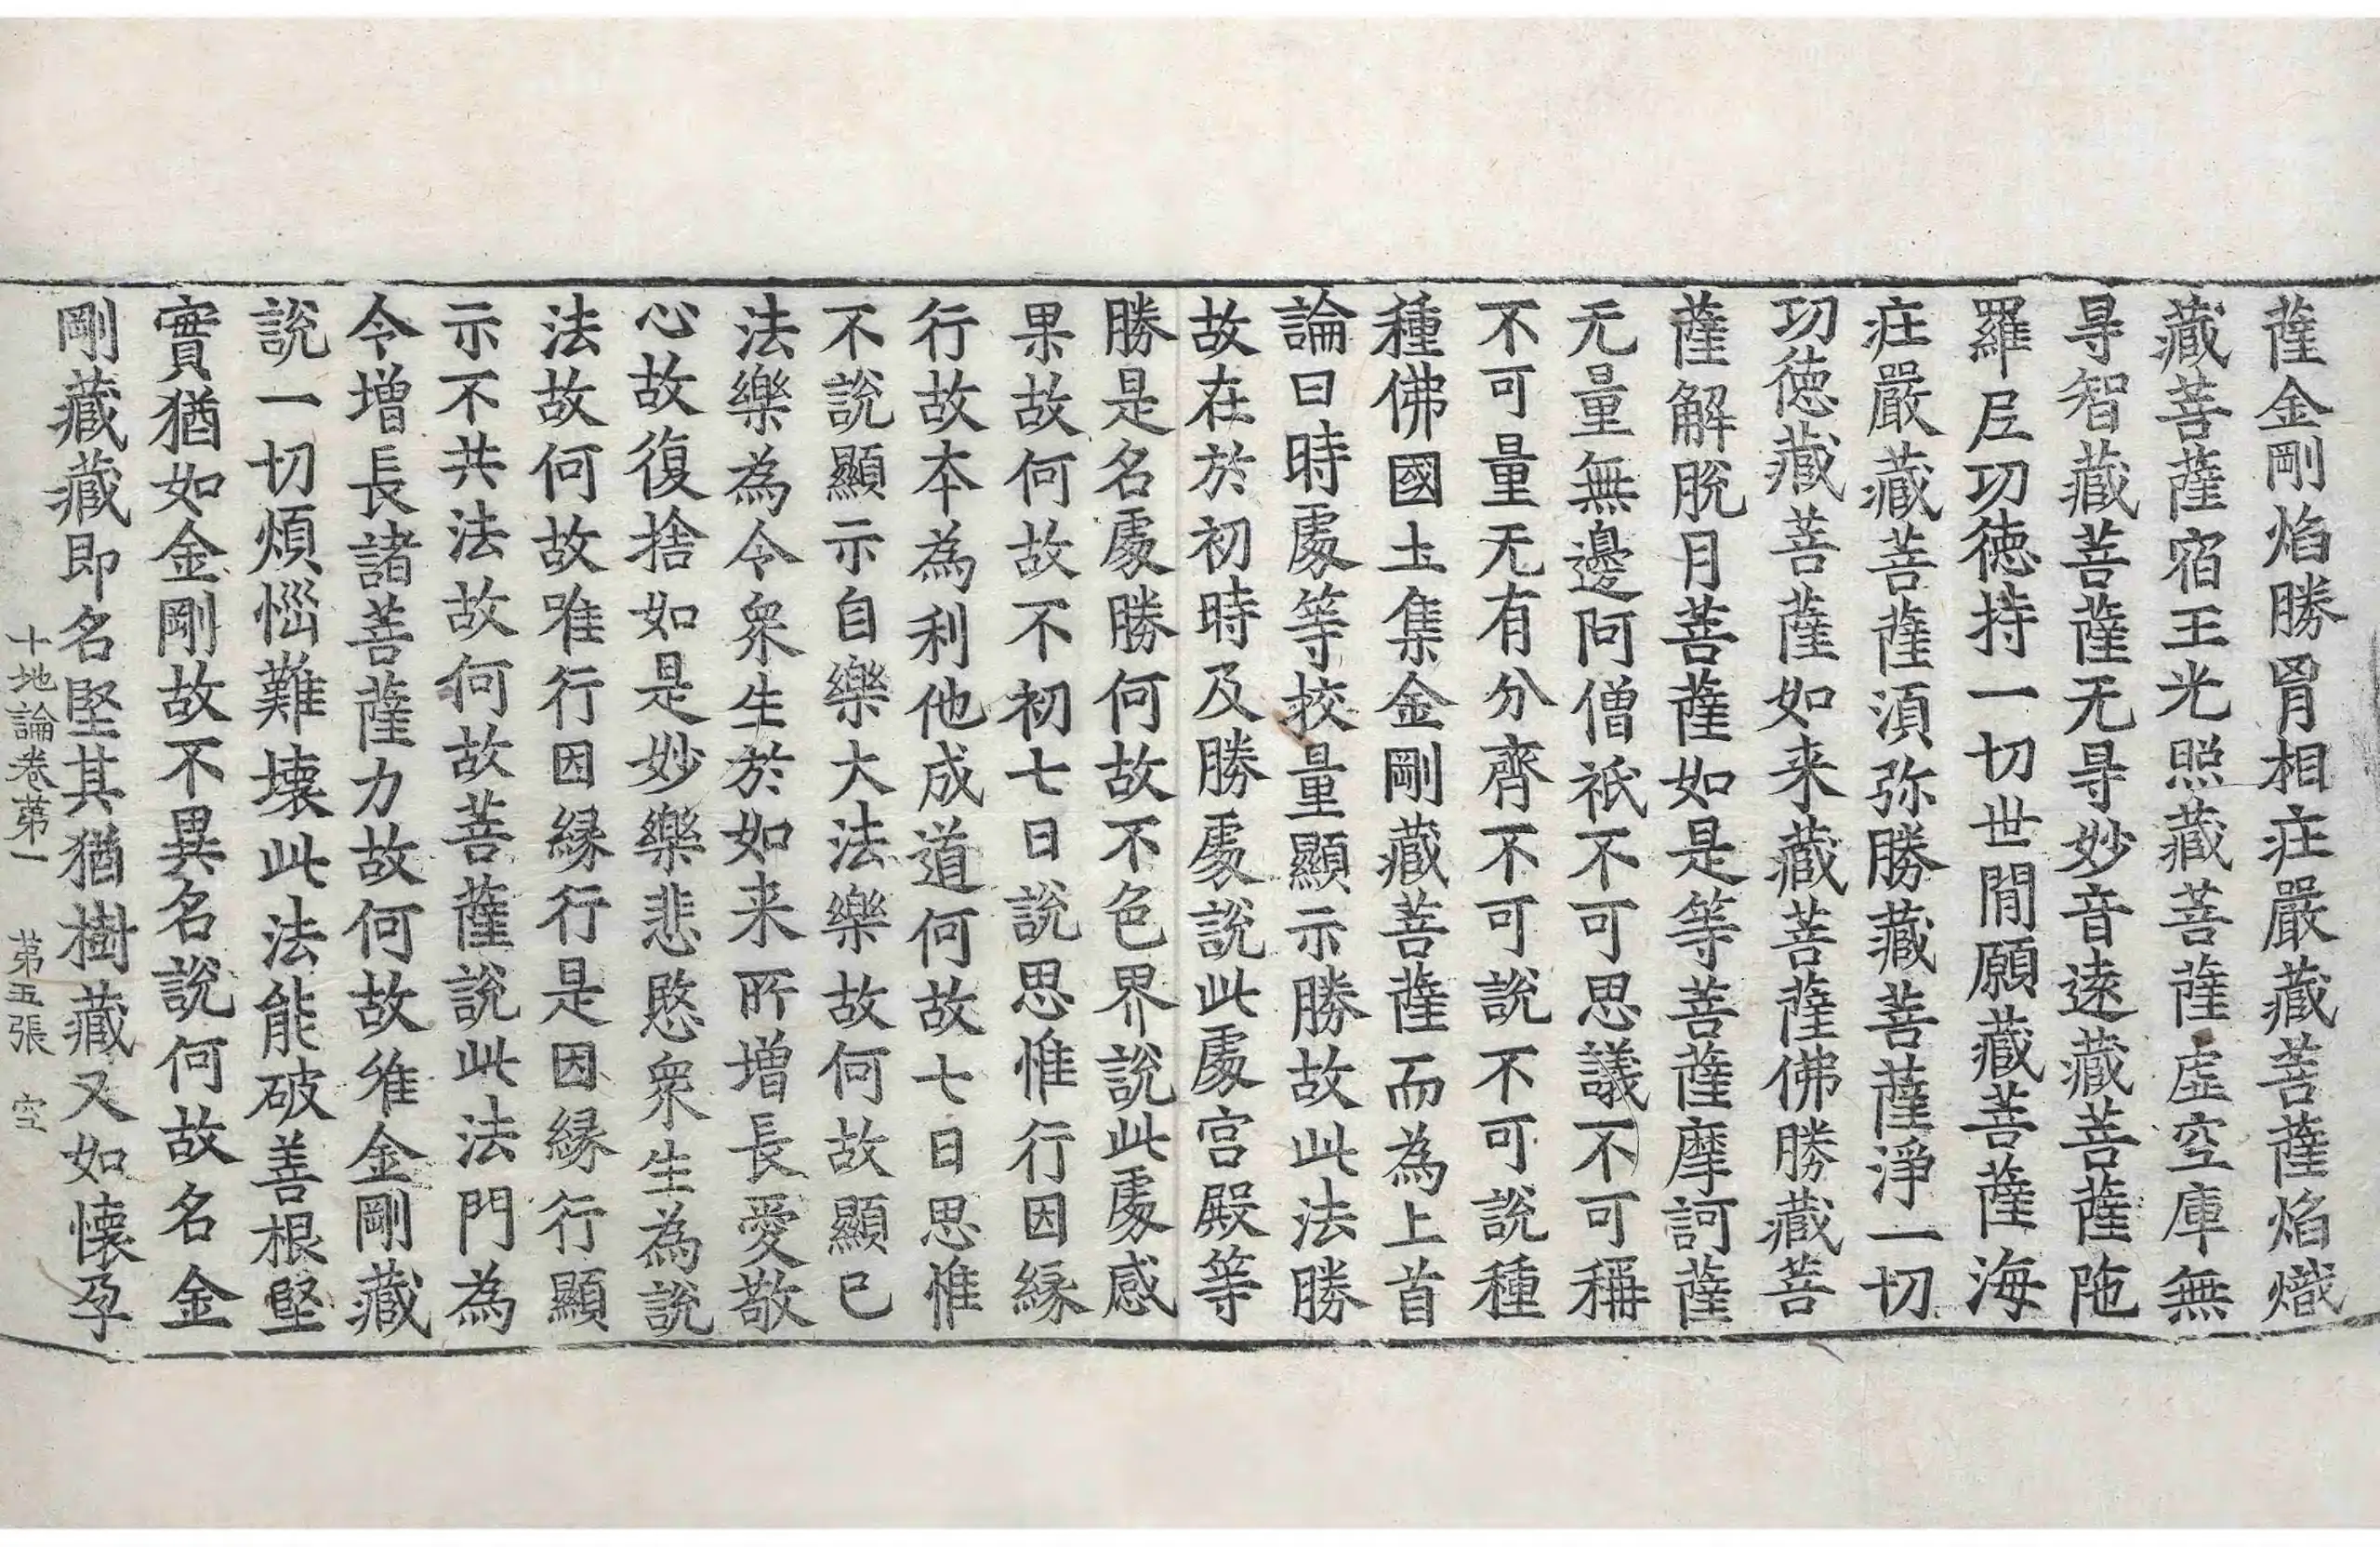 薩金剛焰勝胷相庄嚴藏菩薩焰熾
藏菩薩宿王光照藏菩薩虛空庫無
㝵智藏菩薩无㝵妙音遠藏菩薩陁
羅𡰱功德持一切世閒願藏菩薩海
庄嚴藏菩薩湏弥勝藏菩薩淨一切
功德藏菩薩如来藏菩薩佛勝藏菩
薩解脫月菩薩如是等菩薩摩訶薩
无量無邊阿僧祇不可思議不可稱
不可量无有分齊不可說不可說種
種佛國圡集金剛藏菩薩而為上首
論曰時處等挍量顯示勝故此法勝
故在於初時及勝處說此處宮殿等
勝是名處勝何故不色界說此處感
果故何故不初七日說思惟行因緣
行故本為利他成道何故七日思惟
不說顯示自樂大法樂故何故顯已
法樂為令衆生於如来所增長愛敬
心故復捨如是妙樂悲愍衆生為說
法故何故唯行因緣行是因緣行顯
示不共法故何故菩薩說此法門為
令增長諸菩薩力故何故唯金剛藏
說一切煩惱難壊此法能破善根堅
實猶如金剛故不異名說何故名金
剛藏藏即名堅其猶樹藏又如懐孕
十地論卷第一 第五張 空